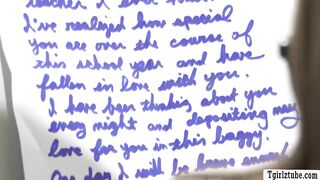 teacher I ever
I've realized how special
you are over the course of
this school year and have
fallen in love with you.
I have been thinking about you
every night and depositing my
love for you in this baggy.
One day I will be brave enough
Tgirlztube.com